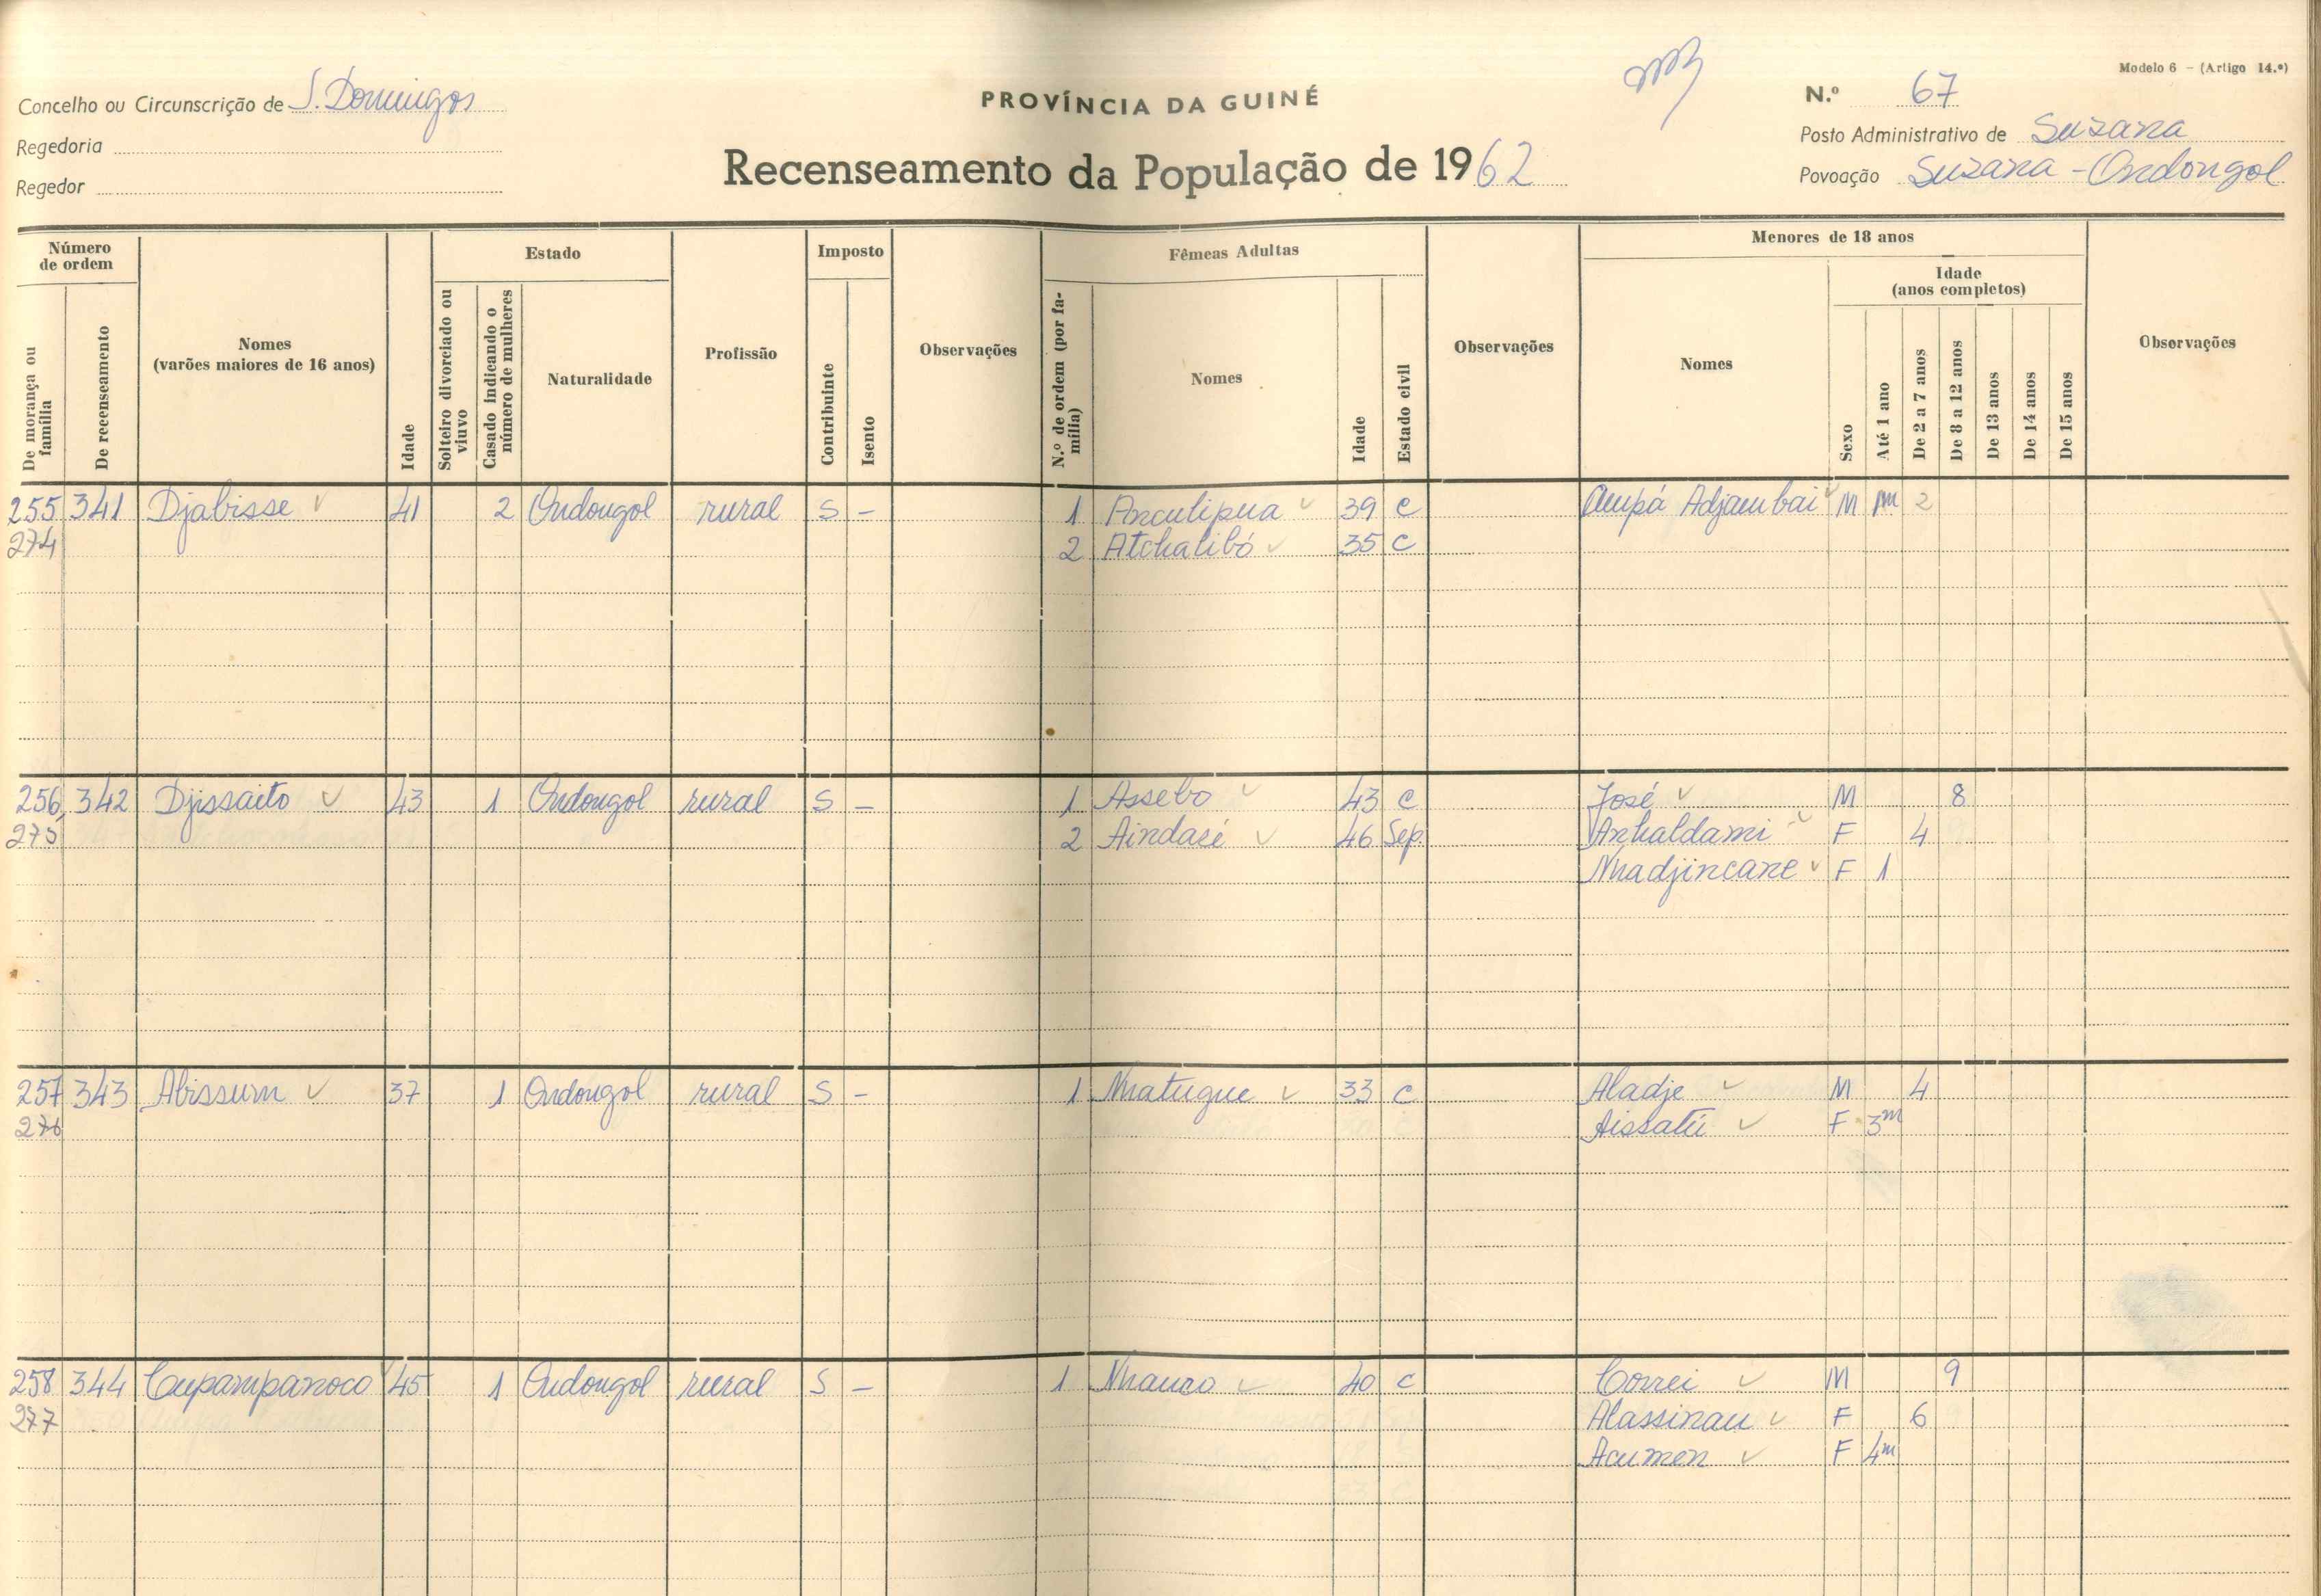 Modelo 6 - (Artigo 14.º)
Concelho ou Circunscrição de S. Domingos
PROVÍNCIA DA GUINÉ
N.º 67
Regedoria
Posto Administrativo de Suzana
Regedor
Recenseamento da População de 1962
Povoação Suzana - Ondongol
Número de ordem
De morança ou família
De recenseamento
Nomes
(varões maiores de 16 anos)
Idade
Estado
Solteiro divorciado ou viuvo
Casado indicando o número de mulheres
Naturalidade
Profissão
Imposto
Contribuinte
Isento
Observações
Fêmeas Adultas
N.º de ordem (por família)
Nomes
Idade
Estado civil
Observações
Menores de 18 anos
Nomes
Sexo
Idade
(anos completos)
Até 1 ano
De 2 a 7 anos
De 8 a 12 anos
De 13 anos
De 14 anos
De 15 anos
Observações
255 341 Djabisse 41 2 Ondongol rural S - 1 Anculipua 39 C Ampá Adjambai M m 2
274 2 Atchalibó 35 C
256 342 Djissaito 43 1 Ondongol rural S - 1 Assebo 43 C José M 8
275 2 Aindasé 46 Sep. Anhaldami F 4
Nhadjincane F 1
257 343 Abissum 37 1 Ondongol rural S - 1 Nhatugue 33 C Aladje M 4
276 Aissatú F 3m
258 344 Cupampanoco 45 1 Ondongol rural S - 1 Nhauro 40 C Correi M 9
277 Alassinau F 6
Acumen F 4m